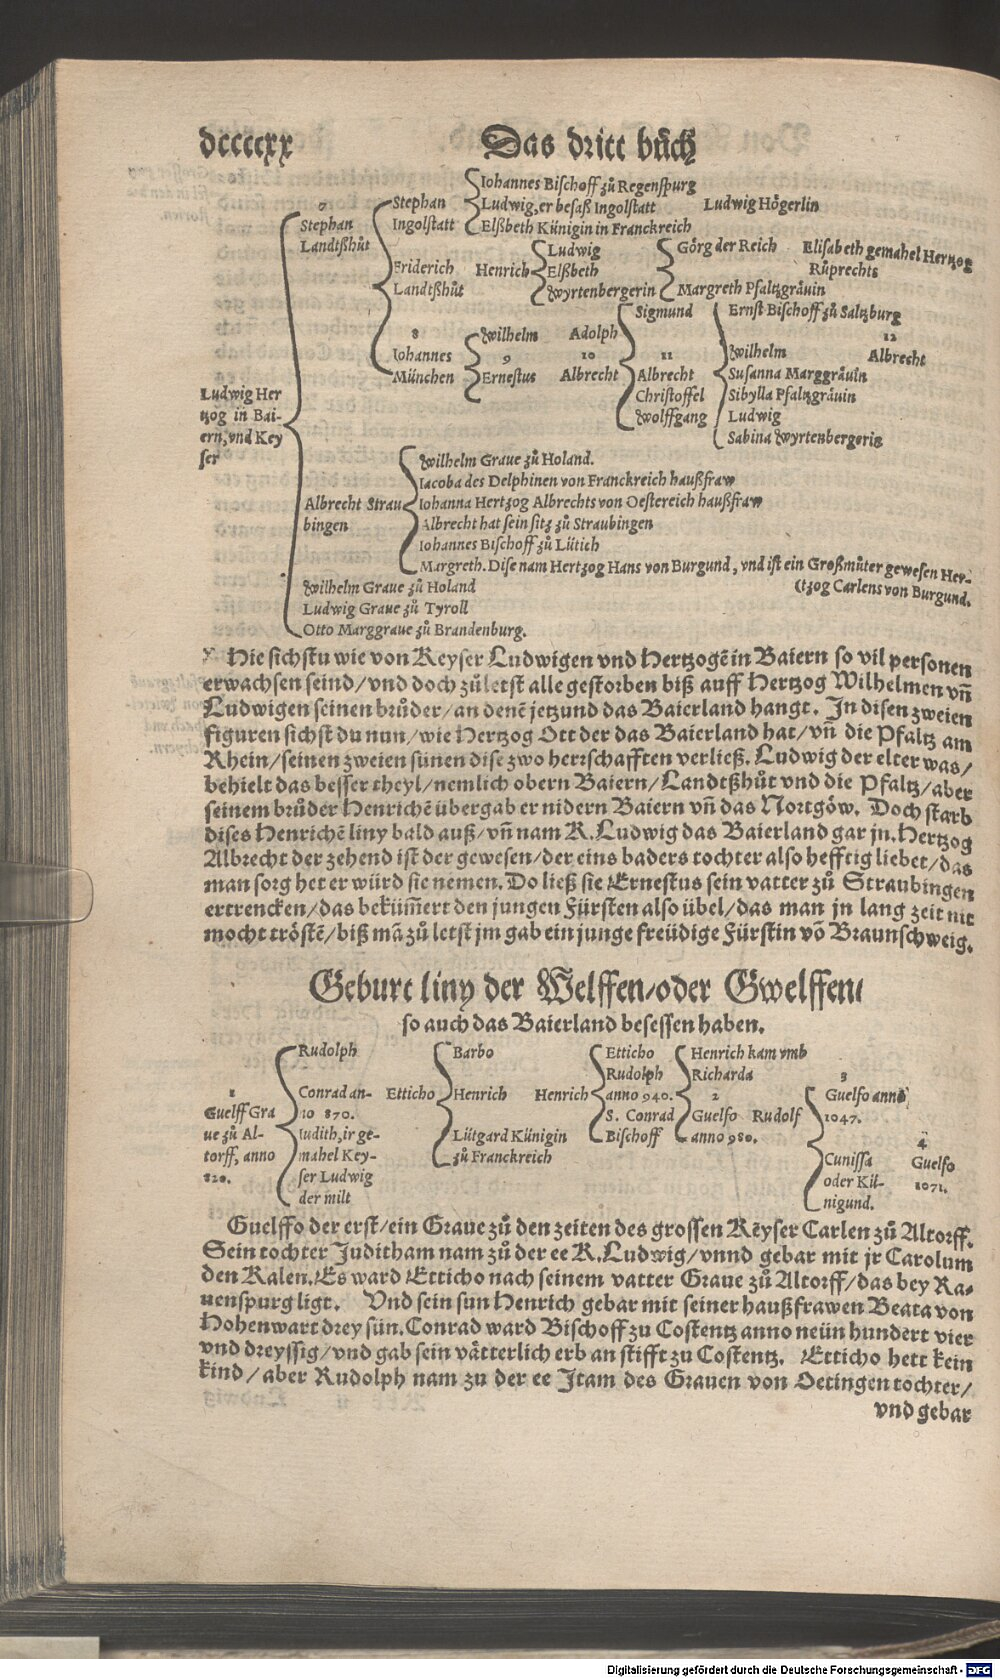 dccccxx Das dritt bůch
Iohannes Bischoff zů Regenspurg
Stephan Ludwig, er besaß Ingolstatt Ludwig Högerlin
7
Stephan Ingolstatt Elßbeth Künigin in Franckreich
Landtßhůt Ludwig Görg der Reich Elisabeth gemahel Hertzog
Friderich Henrich Elßbeth Rüprechts
Landtßhůt Wyrtenbergerin Margreth Pfaltzgräuin
Sigmund Ernst Bischoff zů Saltzburg
8 Wilhelm Adolph 12
Iohannes 9 10 11 Wilhelm Albrecht
München Ernestus Albrecht Albrecht Susanna Marggräuin
Ludwig Her Christoffel Sibylla Pfaltzgräuin
tzog in Bai- Wolffgang Ludwig
ern, vnd Key Sabina Wyrtenbergerin
ser
Wilhelm Graue zů Holand.
Iacoba des Delphinen von Franckreich haußfraw
Albrecht Strau Iohanna Hertzog Albrechts von Oestereich haußfraw
bingen Albrecht hat sein sitz zů Straubingen
Iohannes Bischoff zů Lütich
Margreth. Dise nam Hertzog Hans von Burgund, vnd ist ein Großmůter gewesen Her-
Wilhelm Graue zů Holand (tzog Carlens von Burgund.
Ludwig Graue zů Tyroll
Otto Marggraue zů Brandenburg.
Hie sichstu wie von Keyser Ludwigen vnd Hertzogē in Baiern so vil personen
erwachsen seind/vnd doch zů letst alle gestorben biß auff Hertzog Wilhelmen vñ
Ludwigen seinen brůder/an denē jetzund das Baierland hangt. In disen zweien
figuren sichst du nun/wie Hertzog Ott der das Baierland hat/vñ die Pfaltz am
Rhein/seinen zweien sünen dise zwo herrschafften verließ. Ludwig der elter was/
behielt das besser theyl/nemlich obern Baiern/Landtßhůt vnd die Pfaltz/aber
seinem brůder Henrichē übergab er nidern Baiern vñ das Nortgöw. Doch starb
dises Henrichē liny bald auß/vñ nam K. Ludwig das Baierland gar jn. Hertzog
Albrecht der zehend ist der gewesen/der eins baders tochter also hefftig liebet/das
man sorg het er würd sie nemen. Do ließ sie Ernestus sein vatter zů Straubingen
ertrencken/das bekümmert den jungen Fürsten also übel/das man jn lang zeit nit
mocht tröstē/biß mā zů letst jm gab ein junge freüdige Fürstin vō Braunschweig.
Geburt liny der Welffen/oder Gwelffen/
so auch das Baierland besessen haben.
Rudolph Barbo Etticho Henrich kam vmb
Rudolph Richarda 3
1 Conrad an- Etticho Henrich Henrich anno 940. 2 Guelfo anno
Guelff Gra no 870. S. Conrad Guelfo Rudolf 1047.
ue zů Al- Iudith, ir ge- Lütgard Künigin Bischoff anno 980. 4
torff, anno mahel Key- zů Franckreich Cunissa Guelfo
820. ser Ludwig oder Kil- 1071.
der milt nigund.
Guelffo der erst/ein Graue zů den zeiten des grossen Keyser Carlen zů Altorff.
Sein tochter Juditham nam zů der ee K. Ludwig/vnnd gebar mit jr Carolum
den Kalen. Es ward Etticho nach seinem vatter Graue zů Altorff/das bey Ra-
uenspurg ligt. Vnd sein sun Henrich gebar mit seiner haußfrawen Beata von
Hohenwart drey sün. Conrad ward Bischoff zu Costentz anno neün hundert vier
vnd dreyssig/vnd gab sein vätterlich erb an stifft zu Costentz. Etticho hett kein
kind/aber Rudolph nam zu der ee Itam des Grauen von Oetingen tochter/
vnd gebar
Digitalisierung gefördert durch die Deutsche Forschungsgemeinschaft - DFG